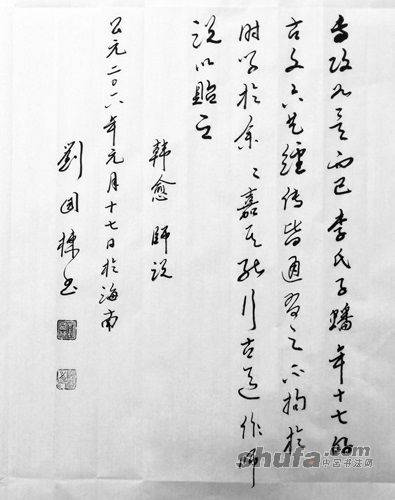 专攻如是而已李氏子蟠年十七好
古文六艺經传皆通习之不拘於
时学於余〻嘉其能行古道作师
说以貽之
韩愈 师说
公元二〇一八年元月十七日於海南
劉国书
shufa.com
中国书法网